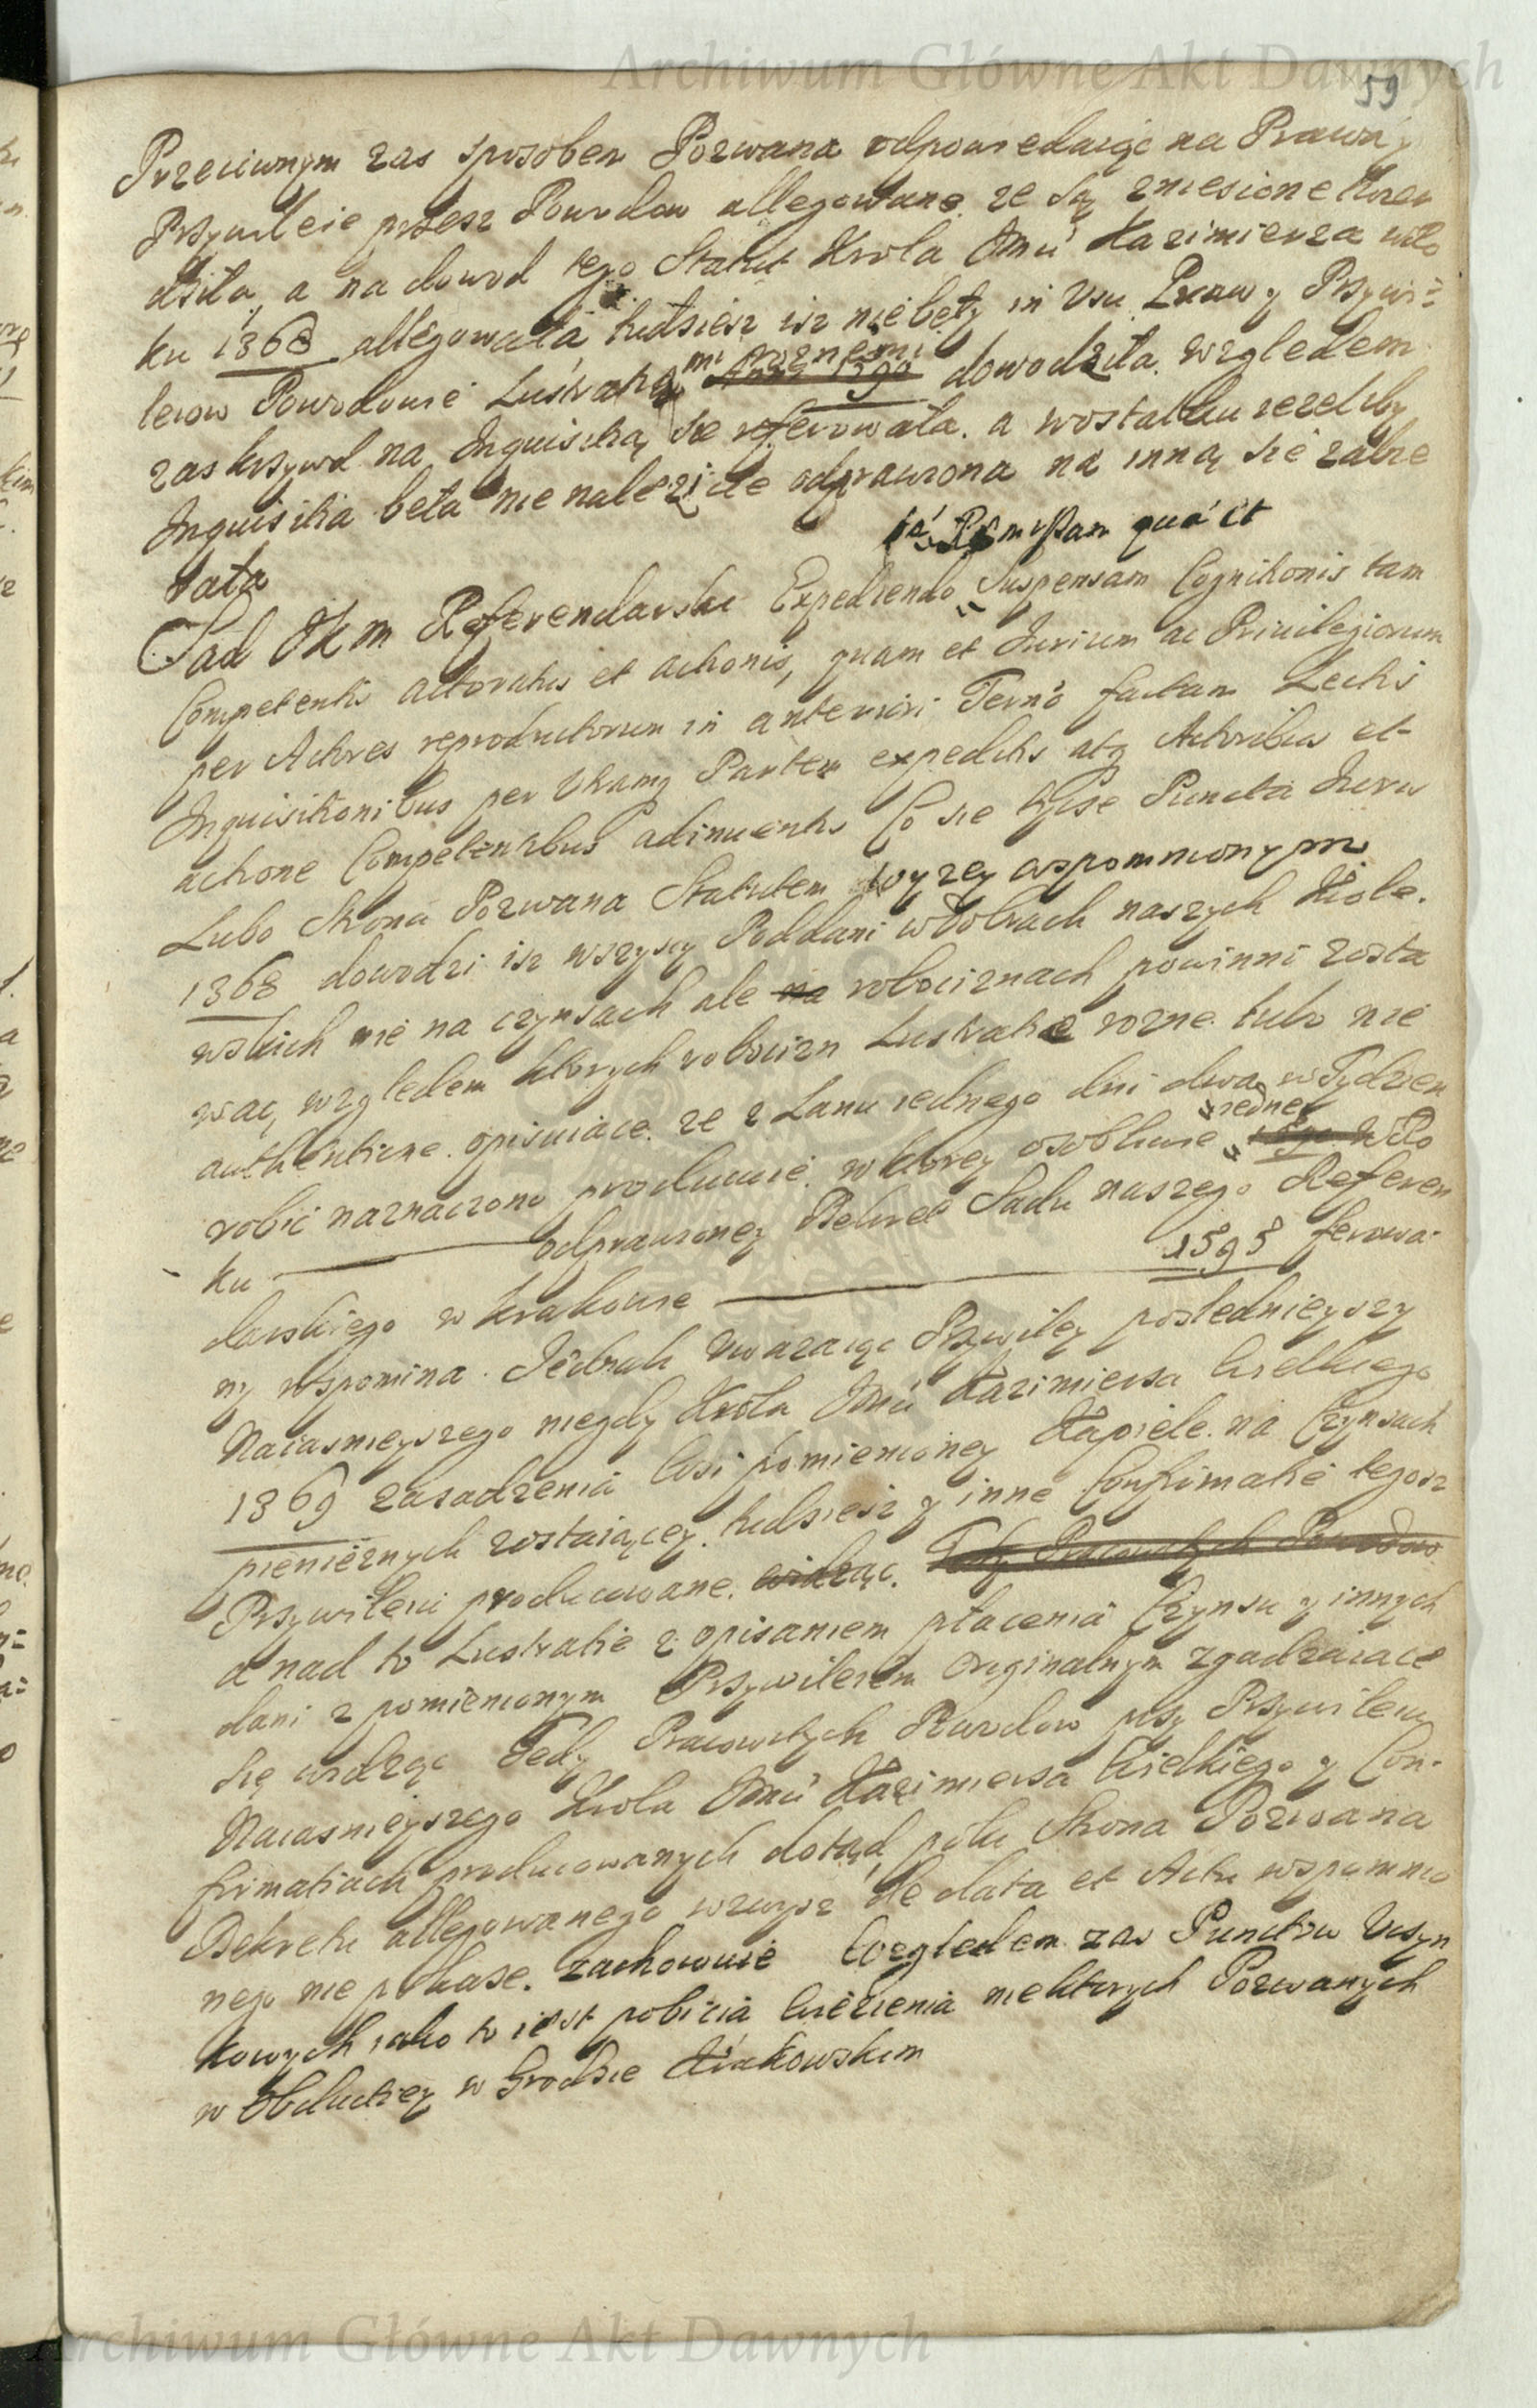 Archiwum Główne Akt Dawnych
59
Przeciwnym zas sposobem Pozwana odpowiedaiąc na Prawa y
Przywileie przesz Powodow allegowane ze są zniesione
dziła, a na dowod tego Statut Krola Jmci Kazimierza wRo
ku 1368 allegowała tudziesz isz nie beły in Usu Prawa y Przywi=
leiow Powodowie Lustratiami roznemi dowodziła. względem
zas krzywd na Inquisitią się referowała. a wostatku iezeliby
Inquisitia beła nie należicie odprawiona na inną sie zabie
rała
Sąd JKM Referendarski Expediendo Suspensam Cognitionis tam
Competentis actoratus et actionis, quam et Jurium ac Privilegiorum
per Actores reproductorum in anteriori Termo factam Lectis
Inquisitionibus per Utramq Partem expeditis atq Actoribus et
actione Competentibus adinventis Co sie tycse Puncta Juris
Lubo Strona Pozwana Statutem wyzey wspomnionym
1368 dowodzi isz wszyscy Poddani wDobrach naszych Krole-
wskich nie na czynsach ale na robociznach powinni zosta
wac, względem ktorych robocizn Lustratie rozne lubo nie
authentizne. opisuiące. ze z Łanu iednego dni dwa wTydzien
robić naznaczono producuie. wktorey osobliwie iedney wRo
ku odprawioney Dekret Sadu naszego Referen
darskiego w Krakowie 1595 ferowa-
ny wspomina. Jednak Uwazaiąc Przywiley poslednieyszy
Naiasnieyszego niegdy Krola Jmci Kazimiersa Wielkiego
1369 zasadzenia Wsi pomienioney Kąpiele. na Czynsach
pienięznych zostaiącey. tudziesz y inne Confirmatie tegosz
Przywileiu producowane. widząc. Tedy Pracowitych Powodow
a nad to Lustratie z opisaniem płacenia Czynsu y innych
dani z pomienionym Przywileiem Originalnym zgadzaiące
się widząc Tedy Pracowitych Powodow przy Przywileiu
Naiasnieyszego Krola Jmci Kazimiersa Wielkiego y Con-
firmatiach producowanych dotąd, poki Strona Pozwana
Dekretu allegowanego wzwysz de data et Actu wspomnio
nego nie pokaze. zachowuie Względem zas Punctow Uczyn
kowych iako to iest pobicia Więzienia niektorych Pozwanych
w Obductiey w Grodzie Krakowskim
Archiwum Główne Akt Dawnych